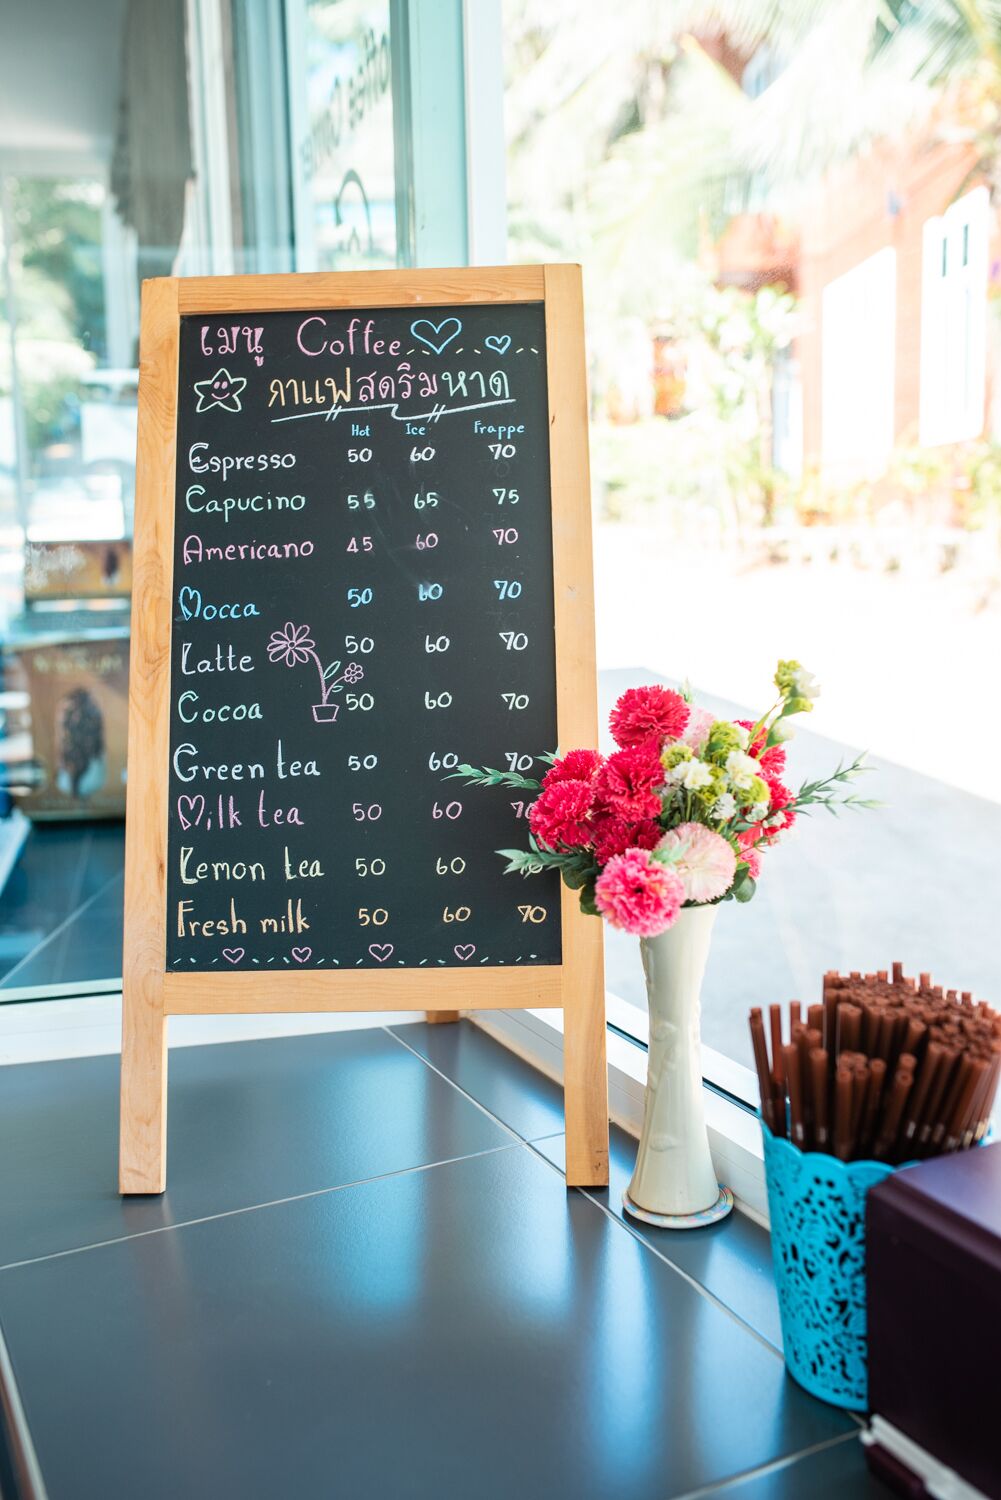 Coffee Corner
เมนู Coffee
กาแฟสดริมหาด
Hot Ice Frappe
Espresso 50 60 70
Capucino 55 65 75
Americano 45 60 70
Mocca 50 60 70
Latte 50 60 70
Cocoa 50 60 70
Green tea 50 60 70
Milk tea 50 60
Lemon tea 50 60
Fresh milk 50 60 70